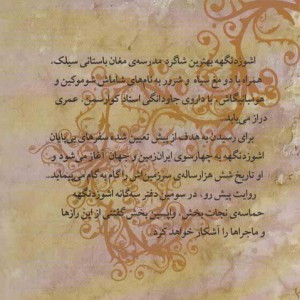 اشوزدنگهه بهترین شاگرد مدرسه‌ی مغان باستانی سیلک،
همراه با دو مغ سیاه و شرور به نام‌های شاماش شوموکین و
هومبانیگاش، با داروی جاودانگی استاد کوارسمن، عمری
دراز می‌یابد.
برای رسیدن به هدف از پیش تعیین شده سفرهای بی‌پایان
اشوزدنگهه به چهارسوی ایران‌زمین و جهان آغاز می‌شود و
او تاریخ شش هزارساله‌ی سرزمین‌اش را گام به گام می‌پیماید...
روایت پیش رو، در سومین دفتر سه‌گانه اشوزدنگهه
حماسه‌ی نجات بخش، واپسین بخش گلشی از این رازها
و ماجراها را آشکار خواهد کرد.